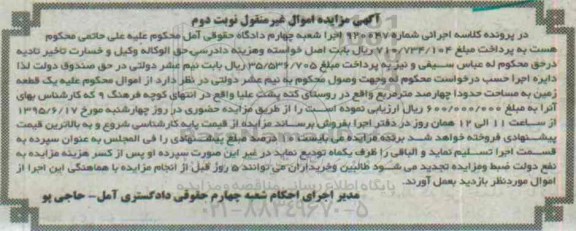 آگهی مزایده اموال غیر منقول نوبت دوم
در پرونده کلاسه اجرائی شماره ۹۲۰۰۴۷ اجرا شعبه چهارم دادگاه حقوقی آمل محکوم علیه علی حاتمی محکوم
هست به پرداخت مبلغ ۷۱۰/۷۳۴/۱۰۳ ریال بابت اصل خواسته وهزینه دادرسی حق الوکاله وکیل و خسارت تاخیر تادیه
درحق محکوم له عباس سیفی و نیز به پرداخت مبلغ ۳۵/۵۳۶/۷۰۵ ریال بابت نیم عشر دولتی در حق صندوق دولت لذا
دایره اجرا حسب درخواست محکوم له وجهت وصول محکوم به نیم عشر دولتی در نظر دارد از اموال محکوم علیه یک قطعه
زمین به مساحت حدودا چهارصد مترمربع واقع در روستای کته پشت علیا واقع در انتهای کوچه فرهنگ ۹ که کارشناس بهای
آنرا به مبلغ ۶۰۰/۰۰۰/۰۰۰ ریال ارزیابی نموده است را از طریق مزایده حضوری در روز چهارشنبه مورخ ۱۳۹۵/۶/۱۷
از ساعت ۱۱ الی ۱۲ همان روز در دفتر اجرا بفروش برساند مزایده از قیمت پایه کارشناسی شروع و به بالاترین قیمت
پیشنهادی فروخته خواهد شد برنده مزایده می بایست ۱۰ درصد مبلغ پیشنهادی را فی المجلس به عنوان سپرده به
قسمت اجرا تسلیم نماید و الباقی را ظرف یکماه تودیع نماید در غیر این صورت سپرده او پس از کسر هزینه مزایده به
نفع دولت ضبط ومزایده تجدید می شود طالبین وخریداران می توانند ۵ روز قبل از انجام مزایده با هماهنگی این اجرا از
اموال موردنظر بازدید بعمل آورند.
مدیر اجرای احکام شعبه چهارم حقوقی دادگستری آمل- حاجی پو
پایگاه اطلاع رسانی مناقصه و مزایده
۰۲۱-۸۸۳۴۹۶۷۰-۵